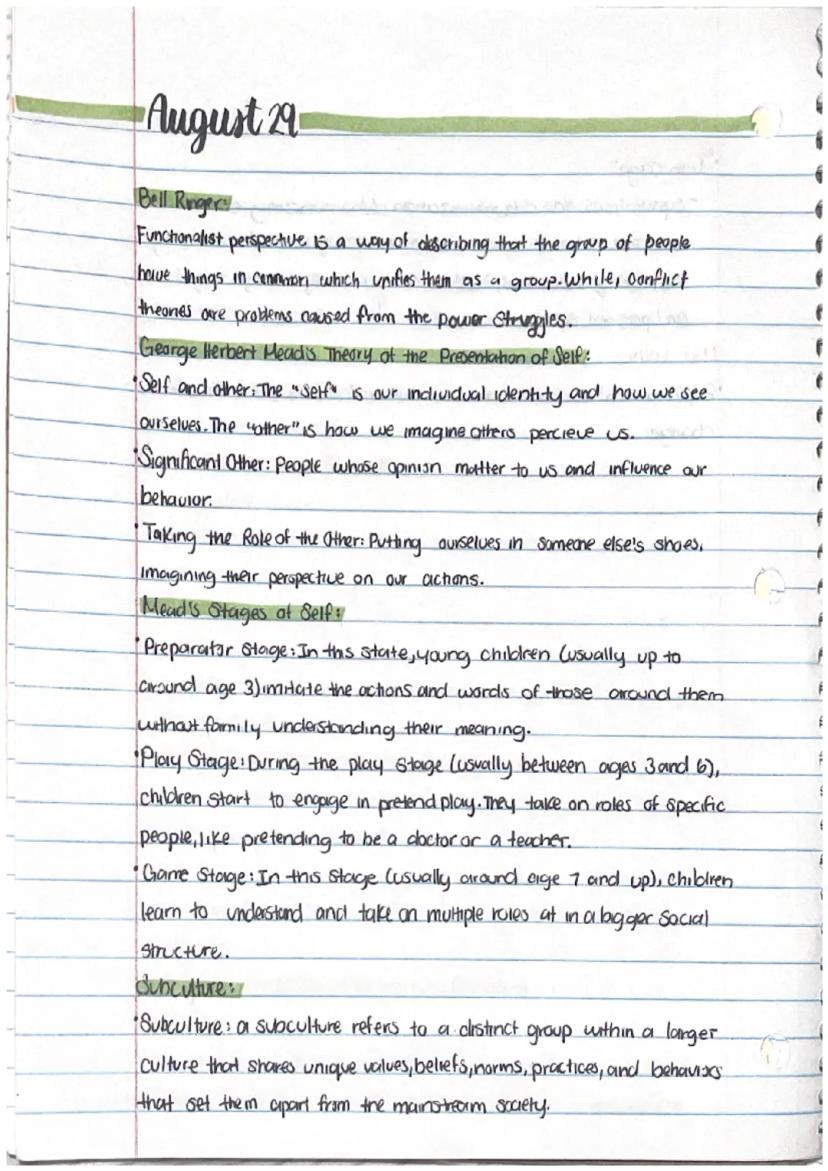 August 29
Bell Ringer:
Functionalist perspective is a way of describing that the group of people
have things in common which unifies them as a group. While, conflict
theories are problems caused from the power struggles.
George Herbert Mead's Theory of the Presentation of Self:
• Self and other: The "self" is our individual identity and how we see
ourselves. The "other" is how we imagine others percieve us.
• Significant Other: People whose opinion matter to us and influence our
behavior.
• Taking the Role of the Other: Putting ourselves in someone else's shoes,
imagining their perspective on our actions.
Mead's Stages of Self:
• Preparator Stage: In this state, young children (usually up to
around age 3) imitate the actions and words of those around them
without formily understanding their meaning.
• Play Stage: During the play stage (usually between ages 3 and 6),
children start to engage in pretend play. They take on roles of specific
people, like pretending to be a doctor or a teacher.
• Game Stage: In this stage (usually around age 7 and up), children
learn to understand and take on multiple roles at in a bigger social
structure.
Subculture:
• Subculture: a subculture refers to a distinct group within a larger
culture that shares unique values, beliefs, norms, practices, and behaviors
that set them apart from the mainstream society.